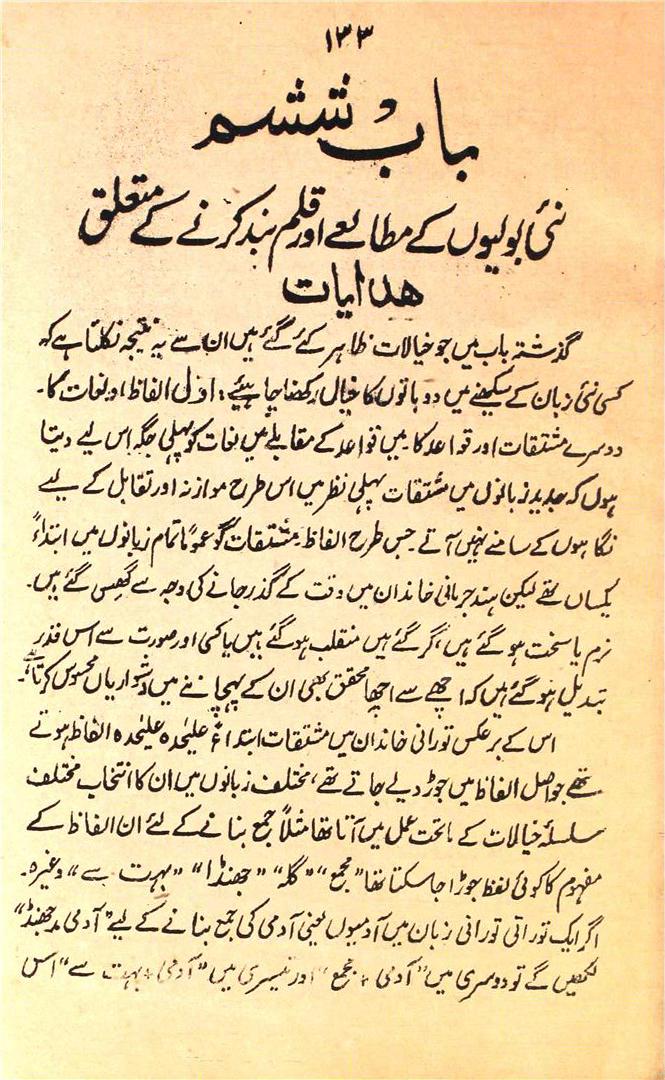 ۱۳۳
باب ششم
نئی بولیوں کے مطالعے اور قلم بند کرنے کے متعلق
ھدایات
گذشتہ باب میں جو خیالات ظاہر کئے گئے ہیں ان سے یہ نتیجہ نکلتا ہے کہ
کسی نئی زبان کے سیکھنے میں دو باتوں کا خیال رکھنا چاہیئے؛ اول الفاظ اور لغات کا۔
دوسرے مشتقات اور قواعد کا۔ میں قواعد کے مقابلے میں لغات کو پہلی جگہ اس لیے دیتا
ہوں کہ جدید زبانوں میں مشتقات پہلی نظر میں اس طرح موازنہ اور تقابل کے لیے
نگاہوں کے سامنے نہیں آتے۔ جس طرح الفاظ۔ مشتقات گو عموماً تمام زبانوں میں ابتداءً
یکساں تھے لیکن ہند جرمانی خاندان میں وقت کے گذر جانے کی وجہ سے گھس گئے ہیں۔
نرم یا سخت ہو گئے ہیں، گر گئے ہیں منقلب ہو گئے ہیں یا کسی اور صورت سے اس قدر
تبدیل ہو گئے ہیں کہ اچھے سے اچھا محقق بھی ان کے پہچاننے میں دشواریاں محسوس کرتا ہے۔
اس کے برعکس تورانی خاندان میں مشتقات ابتداءً علیحدہ علیحدہ الفاظ ہوتے
تھے جو اصل الفاظ میں جوڑ دیے جاتے تھے، مختلف زبانوں میں ان کا انتخاب مختلف
سلسلۂ خیالات کے ماتحت عمل میں آتا تھا مثلاً جمع بنانے کے لئے ان الفاظ کے
مفہوم کا کوئی لفظ جوڑا جا سکتا تھا "مجمع" "گلہ" "جھنڈا" "بہت سے" وغیرہ۔
اگر ایک توراتی تورانی زبان میں آدمیوں یعنی آدمی کی جمع بنانے کے لیے "آدمی + جھنڈ"
لکھیں گے تو دوسری میں "آدمی + مجمع" اور تیسری میں "آدمی + بہت سے" اس